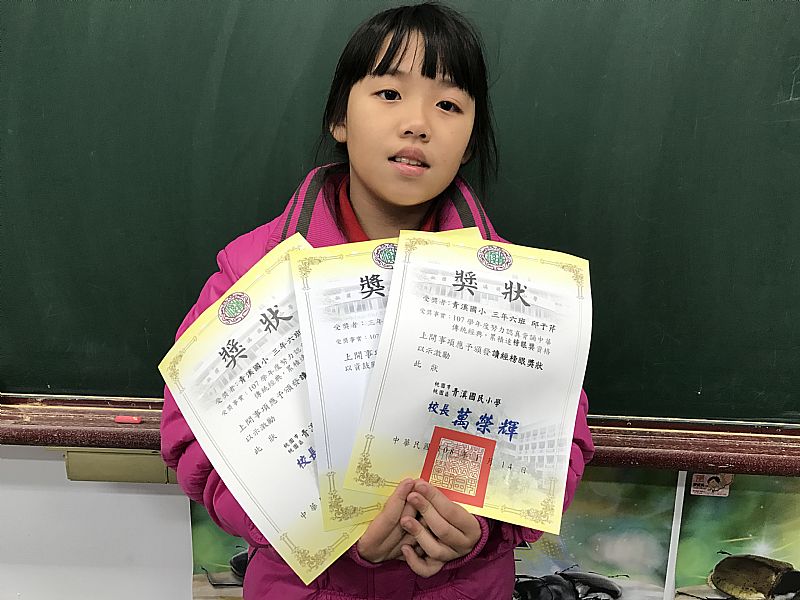 獎狀
受獎者：青溪國小 三年六班 邱于芹
受獎事實：107學年度努力認真背誦中華
傳統經典，累積達榜眼獎資格
上開事項應予頒發讀經榜眼獎狀
以示激勵
此 狀
桃園市
桃園區 青溪國民小學
校長 萬榮輝
中華民國
1月14日
獎
受獎者：
受獎事實：10
上開事項
以資鼓勵
獎狀
受獎者：青溪國小 三年六班
受獎事實：107學年度努力認
傳統經典，累積
上開事項應予頒發讀經
以示激勵
此 狀
桃園市
桃園區 青
校長
中華